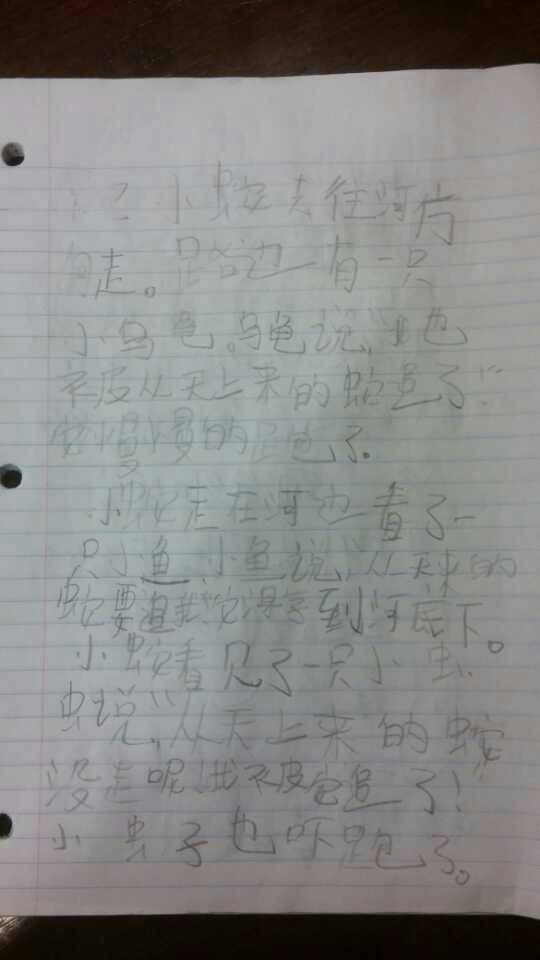 小蛇去往河方
向走。路边一有一只
小乌龟。乌龟说,"我也
不皮从天上来的蛇追了!"
它慢慢的跑了。
小蛇走在河边看了一
只小鱼,小鱼说,"从天来的
蛇要追我它得学到河底下。
小蛇看见了一只小虫。
虫说,"从天上来的蛇
没走呢!我不皮它追了!
小虫子也吓跑了。